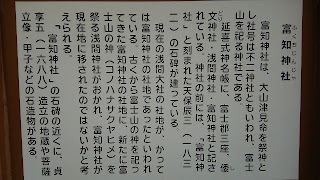 ふくちじんじゃ
富知神社
富知神社は、大山津見命を祭神と
し社号は不二神社ともいわれ、富士
山を祀る神社である。
延喜式神名帳に、富士郡三座、倭
文神社・浅間神社・富知神社と記さ
れている。神社の前には、「富知神
社」と刻まれた天保辰三(一八三
二)の石碑が建っている。
現在の浅間大社の社地が、かって
は富知神社の社地であったといわれ
ている。古くから富士山の神を祀っ
てきた富知神社の社地に、新たに富
士山の神(コノハナサクヤヒメ)を
祭る浅間神社がおかれ、富知神社が
現在地に移されたのではないかと考
えられる。
「富知神社」の石碑の近くに、貞
享五(一六八八)造立の地蔵や菩薩
立像・甲子などの石造物がある